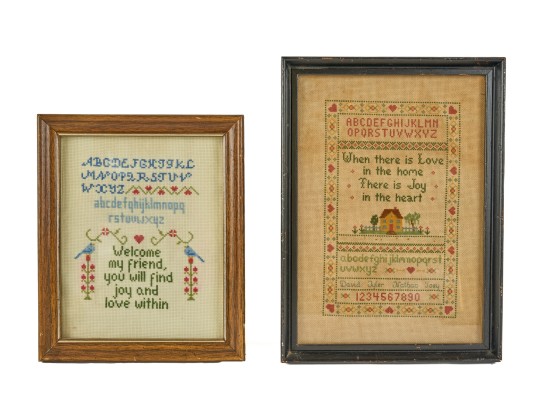 ABCDEFGHIJKL
MNOPQRSTUV
WXYZ
abcdefghijklmnopq
rstuvwxyz
Welcome
my friend,
you will find
joy and
love within
ABCDEFGHIJKLMN
OPQRSTUVWXYZ
When there is Love
in the home
There is Joy
in the heart
abcdefghijklmnopqrst
uvwxyz
David Tyler
1234567890